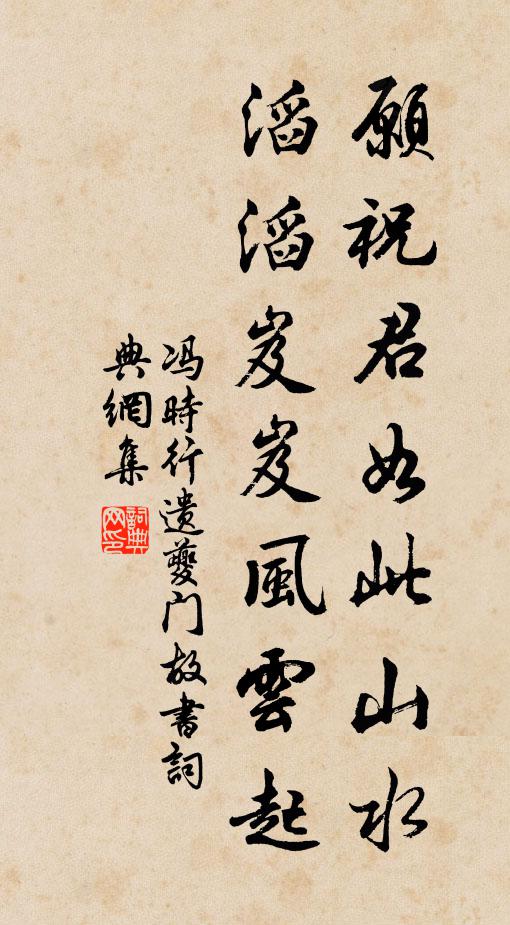 願祝君如此山水
滔滔岌岌風雲起
冯時行遗夔门故書詞
典網集
詞典网印